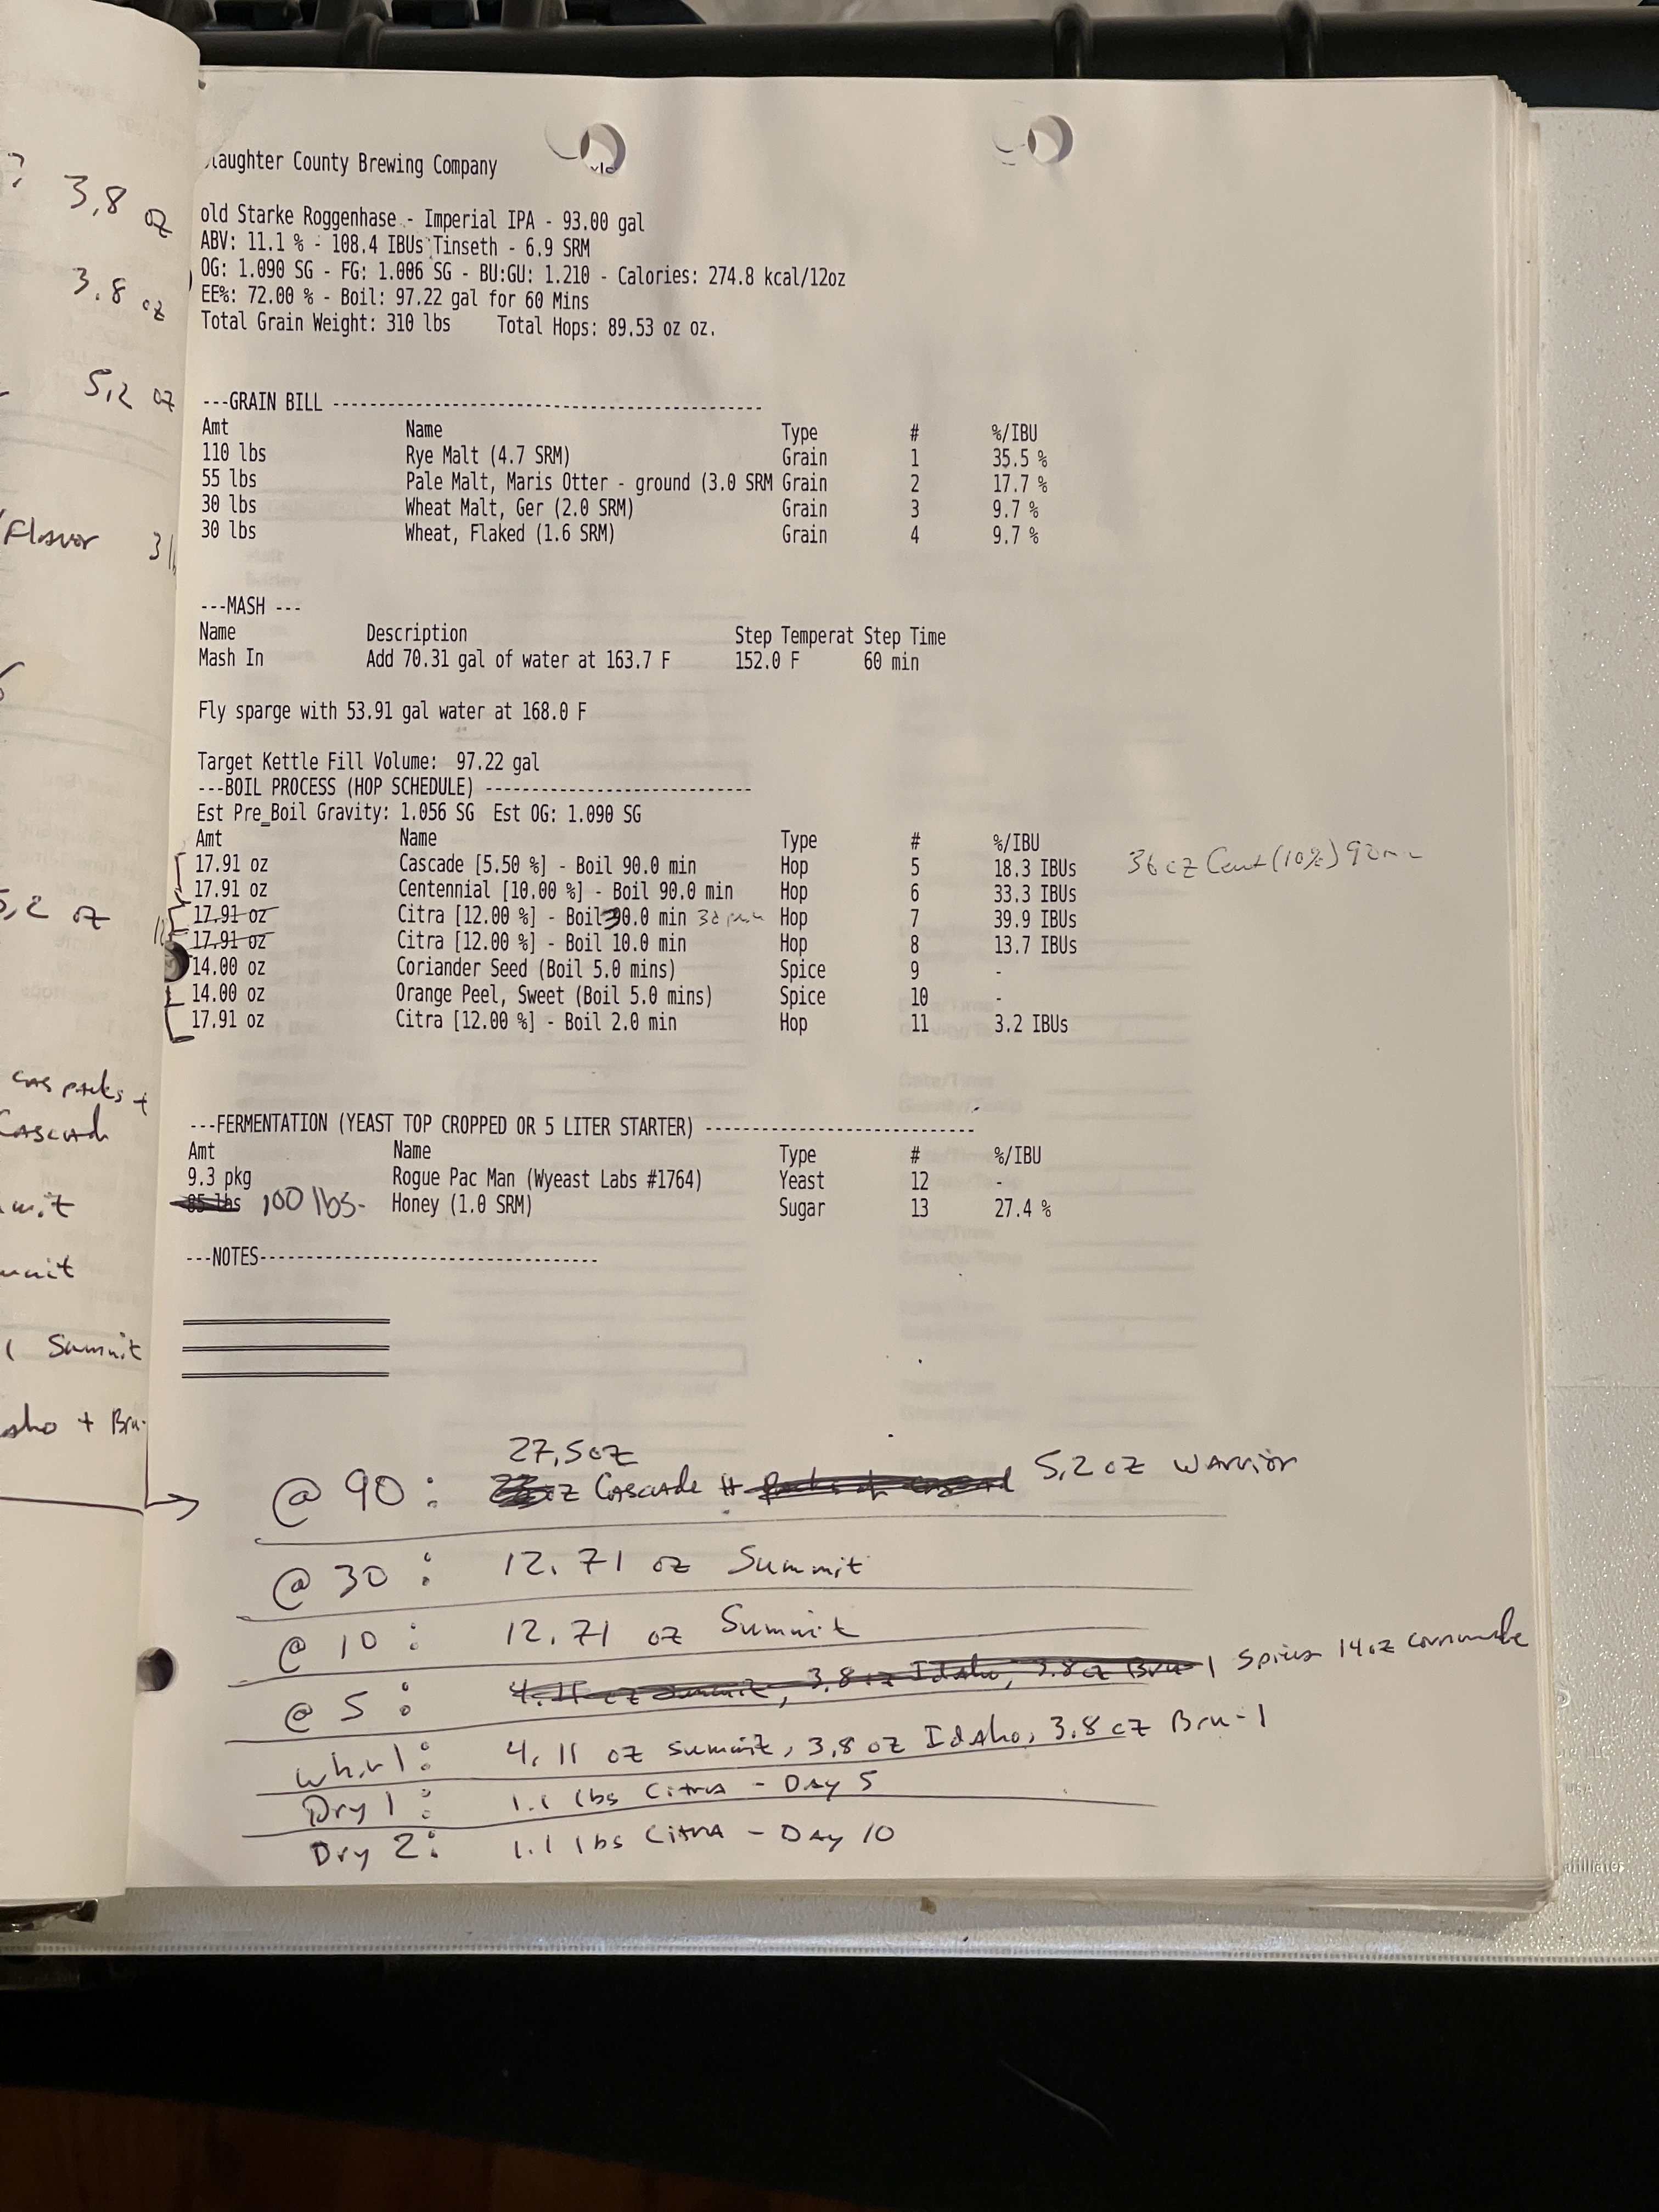 3,8 oz
3.8 oz
5,2 oz
Flavor 3
5,2 oz
Cascade
Summit
laughter County Brewing Company
old Starke Roggenhase - Imperial IPA - 93.00 gal
ABV: 11.1 % - 108.4 IBUs Tinseth - 6.9 SRM
OG: 1.090 SG - FG: 1.006 SG - BU:GU: 1.210 - Calories: 274.8 kcal/12oz
EE%: 72.00 % - Boil: 97.22 gal for 60 Mins
Total Grain Weight: 310 lbs Total Hops: 89.53 oz oz.
---GRAIN BILL ----------------------------------------------
Amt Name Type # %/IBU
110 lbs Rye Malt (4.7 SRM) Grain 1 35.5 %
55 lbs Pale Malt, Maris Otter - ground (3.0 SRM Grain 2 17.7 %
30 lbs Wheat Malt, Ger (2.0 SRM) Grain 3 9.7 %
30 lbs Wheat, Flaked (1.6 SRM) Grain 4 9.7 %
---MASH ---
Name Description Step Temperat Step Time
Mash In Add 70.31 gal of water at 163.7 F 152.0 F 60 min
Fly sparge with 53.91 gal water at 168.0 F
Target Kettle Fill Volume: 97.22 gal
---BOIL PROCESS (HOP SCHEDULE) -----------------------------
Est Pre_Boil Gravity: 1.056 SG Est OG: 1.090 SG
Amt Name Type # %/IBU
17.91 oz Cascade [5.50 %] - Boil 90.0 min Hop 5 18.3 IBUs 36 oz Cent (10%) 90
17.91 oz Centennial [10.00 %] - Boil 90.0 min Hop 6 33.3 IBUs
17.91 oz Citra [12.00 %] - Boil 30.0 min 30 min Hop 7 39.9 IBUs
17.91 oz Citra [12.00 %] - Boil 10.0 min Hop 8 13.7 IBUs
14.00 oz Coriander Seed (Boil 5.0 mins) Spice 9 -
14.00 oz Orange Peel, Sweet (Boil 5.0 mins) Spice 10 -
17.91 oz Citra [12.00 %] - Boil 2.0 min Hop 11 3.2 IBUs
---FERMENTATION (YEAST TOP CROPPED OR 5 LITER STARTER) -----------------------------
Amt Name Type # %/IBU
9.3 pkg Rogue Pac Man (Wyeast Labs #1764) Yeast 12 -
85 lbs 100 lbs- Honey (1.0 SRM) Sugar 13 27.4 %
---NOTES------------------------------------
Summit
+ Bru-
27,5 oz
@ 90: oz Cascade 5,2 oz Warrior
@ 30: 12.71 oz Summit
@ 10: 12.71 oz Summit
@ 5: 4.11 oz Summit, 3.8 oz Idaho, 3.8 oz Bru-1 Spices 14 oz
whirl: 4.11 oz summit, 3.8 oz Idaho, 3.8 oz Bru-1
Dry 1: 1.1 lbs Citra - Day 5
Dry 2: 1.1 lbs Citra - Day 10